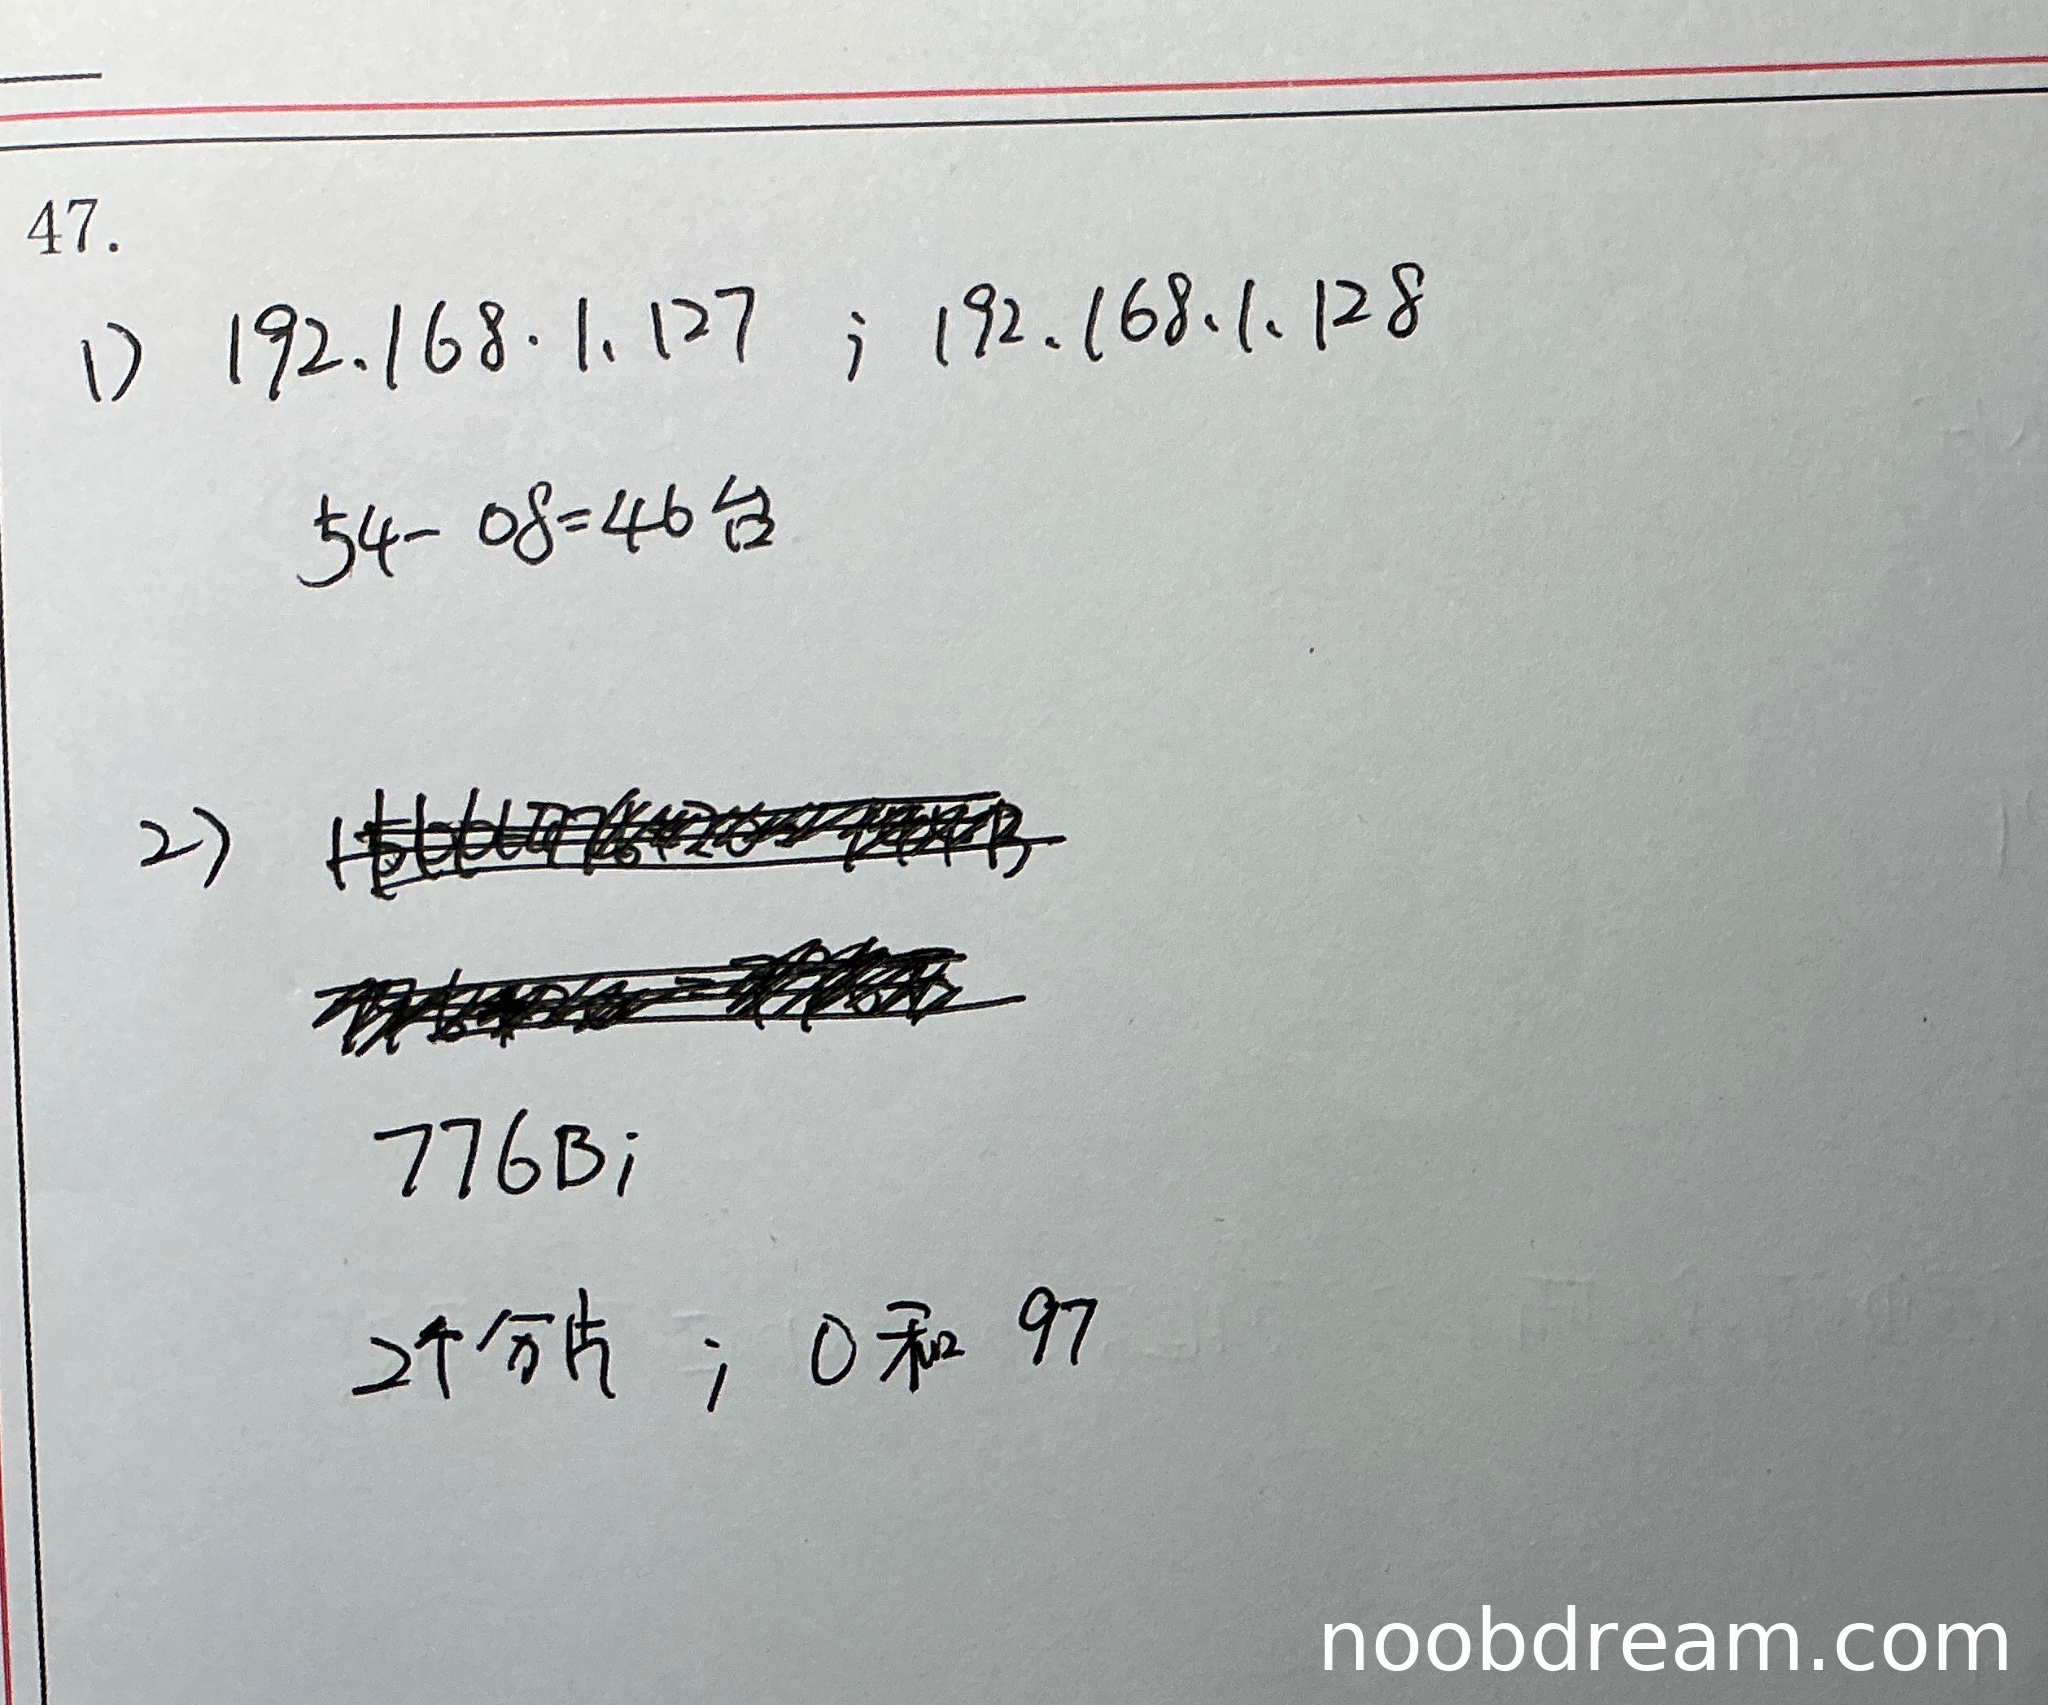 47.
1) 192.168.1.127 ; 192.168.1.128
54-08=46台
2)
776B;
2个分片 ; 0和 97
noobdream.com